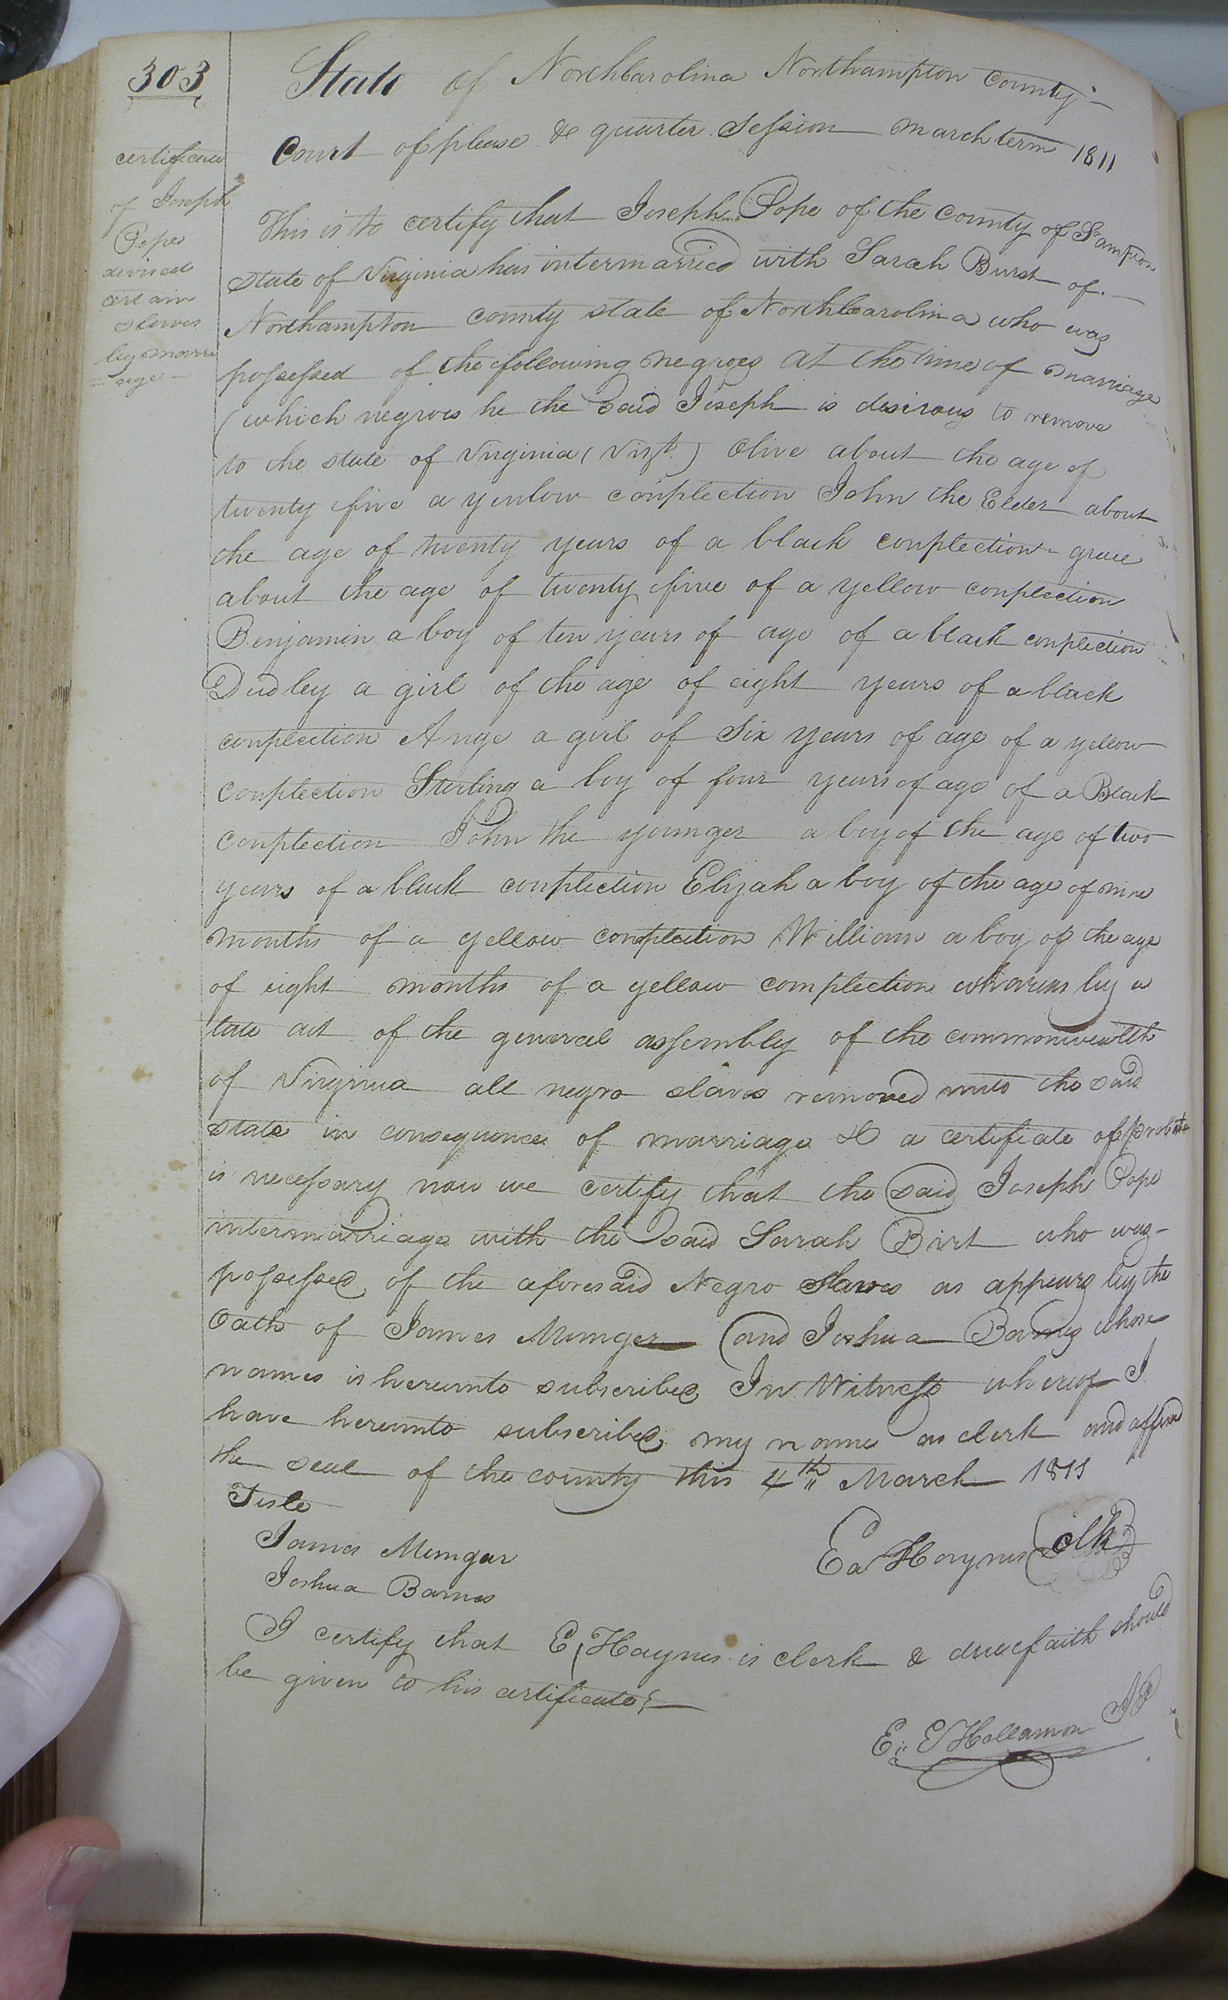 303
State of North Carolina Northampton County
Court of please & quarter Session March term 1811
certificate
of Joseph
Pope
devised
certain
slaves
by marri
= age
This is to certify that Joseph Pope of the County of S.ampton
state of Virginia has intermarried with Sarah Burt of
Northampton county state of North Carolina who was
possessed of the following negroes at the time of marriage
(which negroes he the said Joseph is desirous to remove
to the state of Virginia (Vizt.) Olive about the age of
twenty five a yenlow conplection John the Elder about
the age of twenty years of a black conplection grace
about the age of twenty five of a yellow conplection
Benjamin a boy of ten years of age of a black conplection
Dudley a girl of the age of eight years of a black
conplection Ange a girl of Six years of age of a yellow
conplection Sterling a boy of four years of age of a Black
conplection John the younger a boy of the age of two
years of a black conplection Elizah a boy of the age of nine
months of a yellow conplection William a boy of the age
of eight months of a yellow complection whareas by a
late act of the general assembly of the commonwealth
of Virginia all negro slaves removed into the said
state in consequence of marriage &c a certificate of probate
is necessary now we certify that the said Joseph Pope
intermarriage with the said Sarah Birt who was
possessed of the aforesaid Negro slaves as appears by the
Oath of James Munger and Joshua Barnes whose
names is hereunto subscribed In Witness whereof I
have hereunto subscribed my name as clerk and affixed
the seal of the county this 4th March 1811
Teste
James Mungar
Joshua Barnes
Ea Haynes clk
I certify that E, Haynes is clerk & due faith should
be given to his certificate
E: E Hallamon JP